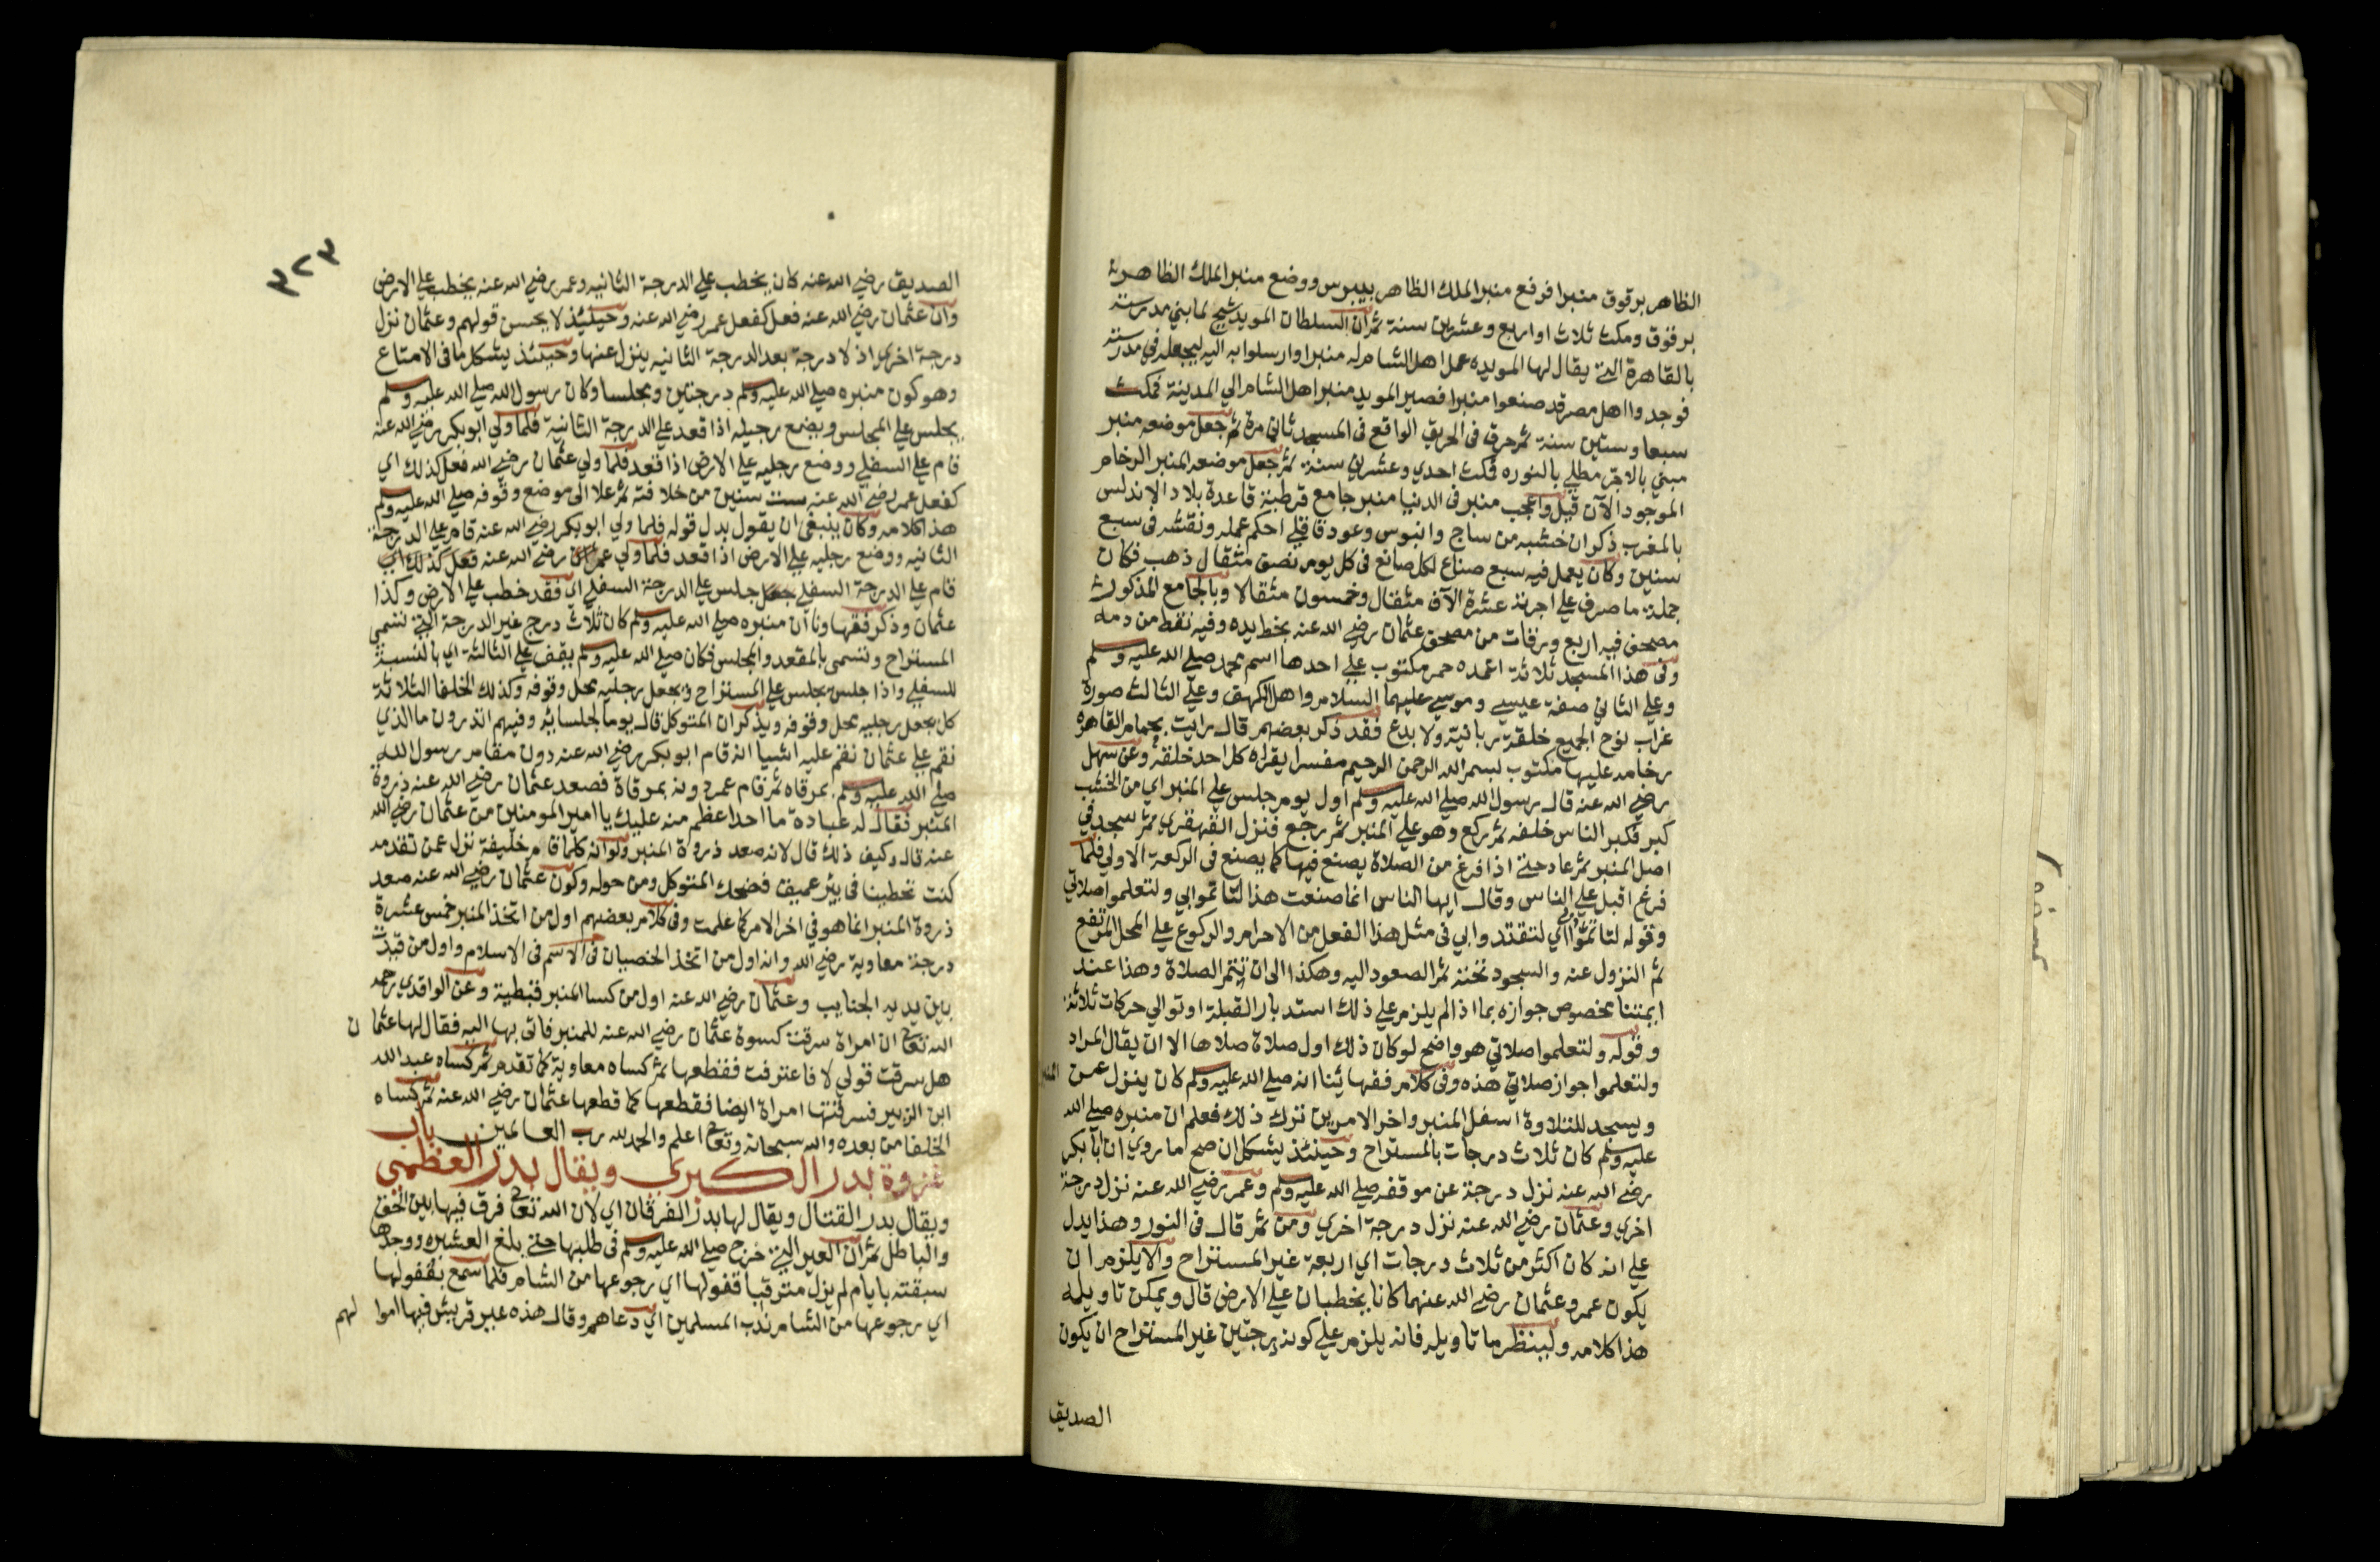 الظاهر برقوق منبرا فرفع منبر الملك الظاهر بيبرس ووضع منبر الملك الظاهر
برقوق ومكث ثلاث او اربع وعشرين سنة ثم ان السلطان المويد شيخ لما بني مدرسته
بالقاهرة التي يقال لها المويديه عمل اهل الشام له منبرا وارسلوا به اليه ليجعله في مدرسته
فوجدوا اهل مصر قد صنعوا منبرا فصير المويد منبر اهل الشام الي المدينة فمكث
سبعا وستين سنة ثم حرق في الحريق الواقع في المسجد ثاني مرة ثم جعل موضعه منبر
مبني بالاجر مطلي بالنوره فمكث احدي وعشرين سنة ثم جعل موضعه المنبر الرخام
الموجود الآن قيل واعجب منبر في الدنيا منبر جامع قرطبة قاعدة بلاد الاندلس
بالمغرب ذكر ان خشبه من ساج وابنوس وعود قاقلي احكم عمله ونقشه في سبع
سنين وكان يعمل فيه سبع صناع لكل صانع في كل يوم نصف مثقال ذهب فكان
جملة ما صرف علي اجرته عشرة الآف مثقال وخمسون مثقالا وبالجامع المذكور
مصحف فيه اربع ورقات من مصحف عثمان رضي الله عنه بخط يده وفيه نقط من دمه
وفي هذا المسجد ثلاثة اعمده حمر مكتوب علي احدها اسم محمد صلي الله عليه وسلم
وعلي الثاني صفة عيسي وموسي عليهما السلام واهل الكهف وعلي الثالث صورة
غراب نوح الجميع خلقة ربانية ولا بدع فقد ذكر بعضهم قال رايت بحمام القاهره
رخامه عليها مكتوب بسم الله الرحمن الرحيم مفسرا يقراه كل احد خلقة وعن سهل
رضي الله عنه قال رسول الله صلي الله عليه وسلم اول يوم جلس علي المنبر اي من الخشب
كبر فكبر الناس خلفه ثم ركع وهو علي المنبر ثم رجع فنزل القهقري ثم سجد في
اصل المنبر ثم عاد حتي اذا فرغ من الصلاة يصنع فيها كما يصنع في الركعة الاولي فلما
فرغ اقبل علي الناس وقال ايها الناس انما صنعت هذا لتاتموا بي ولتعلموا صلاتي
وقوله لتاتموا بي اي لتقتدوا بي في مثل هذا الفعل من الاحرام والركوع علي المحل المرتفع
ثم النزول عنه والسجود تحته ثم الصعود اليه وهكذا الي ان تتم الصلاة وهذا عند
ايمتنا مخصوص جوازه بما اذا لم يلزم علي ذلك استدبار القبلة او توالي حركات ثلاثة
وقوله ولتعلموا صلاتي هو واضح لو كان ذلك اول صلاة صلاها الا ان يقال المراد
ولتعلموا جواز صلاتي هذه وفي كلام فقهائنا انه صلي الله عليه وسلم كان ينزل عن المنبر
ويسجد للتلاوة اسفل المنبر واخر الامرين ترك ذلك فعلم ان منبره صلي الله
عليه وسلم كان ثلاث درجات بالمستراح وحينئذ يشكل ان صح ما روي ان ابا بكر
رضي الله عنه نزل درجة عن موقفه صلي الله عليه وسلم وعمر رضي الله عنه نزل درجة
اخري وعثمان رضي الله عنه نزل درجة اخري ومن ثم قال في النور وهذا يدل
علي انه كان اكثر من ثلاث درجات اي اربعة غير المستراح والا يلزم ان
يكون عمر وعثمان رضي الله عنهما كانا يخطبان علي الارض قال ويمكن تاويله
هذا كلامه ولينظر ما تاويله فانه يلزم علي كونه درجتين غير المستراح ان يكون
الصديق
٣٢٣
الصديق رضي الله عنه كان يخطب علي الدرجة الثانيه وعمر رضي الله عنه يخطب علي الارض
وان عثمان رضي الله عنه فعل كفعل عمر رضي الله عنه وحينئذ لا يحسن قولهم وعثمان نزل
درجة اخري اذ لا درجة بعد الدرجة الثانيه ينزل عنها وحينئذ يشكل ما في الامتاع
وهو كون منبره صلي الله عليه وسلم درجتين ومجلسا وكان رسول الله صلي الله عليه وسلم
يجلس علي المجلس ويضع رجليه اذا قعد علي الدرجة الثانية فلما ولي ابو بكر رضي الله عنه
قام علي السفلي ووضع رجليه علي الارض اذا قعد فلما ولي عثمان رضي الله فعل كذلك اي
كفعل عمر رضي الله عنه ست سنين من خلافته ثم علا الي موضع وقوفه صلي الله عليه وسلم
هذا كلامه وكان ينبغي ان يقول بدل قوله فلما ولي ابو بكر رضي الله عنه قام علي الدرجة
الثانيه ووضع رجليه علي الارض اذا قعد فلما ولي عمر رضي الله عنه فعل كذلك اي
قام علي الدرجة السفلي جلس علي الدرجة السفلي اي فقد خطب علي الارض وكذا
عثمان وذكر فقهاونا ان منبره صلي الله عليه وسلم كان ثلاث درج غير الدرجة التي تسمي
المستراح وتسمي بالمقعد والمجلس فكان صلي الله عليه وسلم يقف علي الثالثة اي بالنسبة
للسفلي واذا جلس يجلس علي المستراح ويجعل رجليه محل وقوفه وكذلك الخلفا الثلاثة
كل يجعل رجليه محل وقوفه ويذكر ان المتوكل قال يوما لجلسائه وفيهم اتدرون ما الذي
نقم علي عثمان نقم عليه اشيا انه قام ابو بكر رضي الله عنه دون مقام رسول الله
صلي الله عليه وسلم بمرقاه ثم قام عمر دونه بمرقاة فصعد عثمان رضي الله عنه ذروة
المنبر فقال له عبادة ما احد اعظم منه عليك يا امير المومنين من عثمان رضي الله
عنه قال وكيف ذلك قال لانه صعد ذروة المنبر ولو انه كلما قام خليفة نزل عن تقدمه
كنت تخطبنا في بير عميق فضحك المتوكل ومن حوله وكون عثمان رضي الله عنه صعد
ذروة المنبر انما هو في اخر الامر كما علمت وفي كلام بعضهم اول من اتخذ المنبر خمس عشرة
درجة معاوية رضي الله وانه اول من اتخذ الخصيان في الاسلام واول من قيدت
بين يديه الجنايب وعثمان رضي الله عنه اول من كسا المنبر قبطية وعن الواقدي رحمه
الله تعالي ان امراة سرقت كسوة عثمان رضي الله عنه للمنبر فاتي بها اليه فقال لها عثمان
هل سرقت قولي لا فاعترفت فقطعها ثم كساه معاوية كما تقدم ثم كساه عبد الله
ابن الزبير فسرقتها امراة ايضا فقطعها كما قطعها عثمان رضي الله عنه ثم كساه
الخلفا من بعده والله سبحانه وتعالي اعلم والحمد لله رب العالمين باب
غزوة بدر الكبري ويقال بدر العظمي
ويقال بدر القتال ويقال لها بدر الفرقان اي لان الله تعالي فرق فيها بين الحق
والباطل ثم ان العير التي خرج صلي الله عليه وسلم في طلبها حتي بلغ العشيره ووجدها
سبقته بايام لم يزل مترقبا قفولها اي رجوعها من الشام فلما سمع بقفولها
اي رجوعها من الشام ندب المسلمين اي دعاهم وقال هذه عير قريش فيها اموالهم